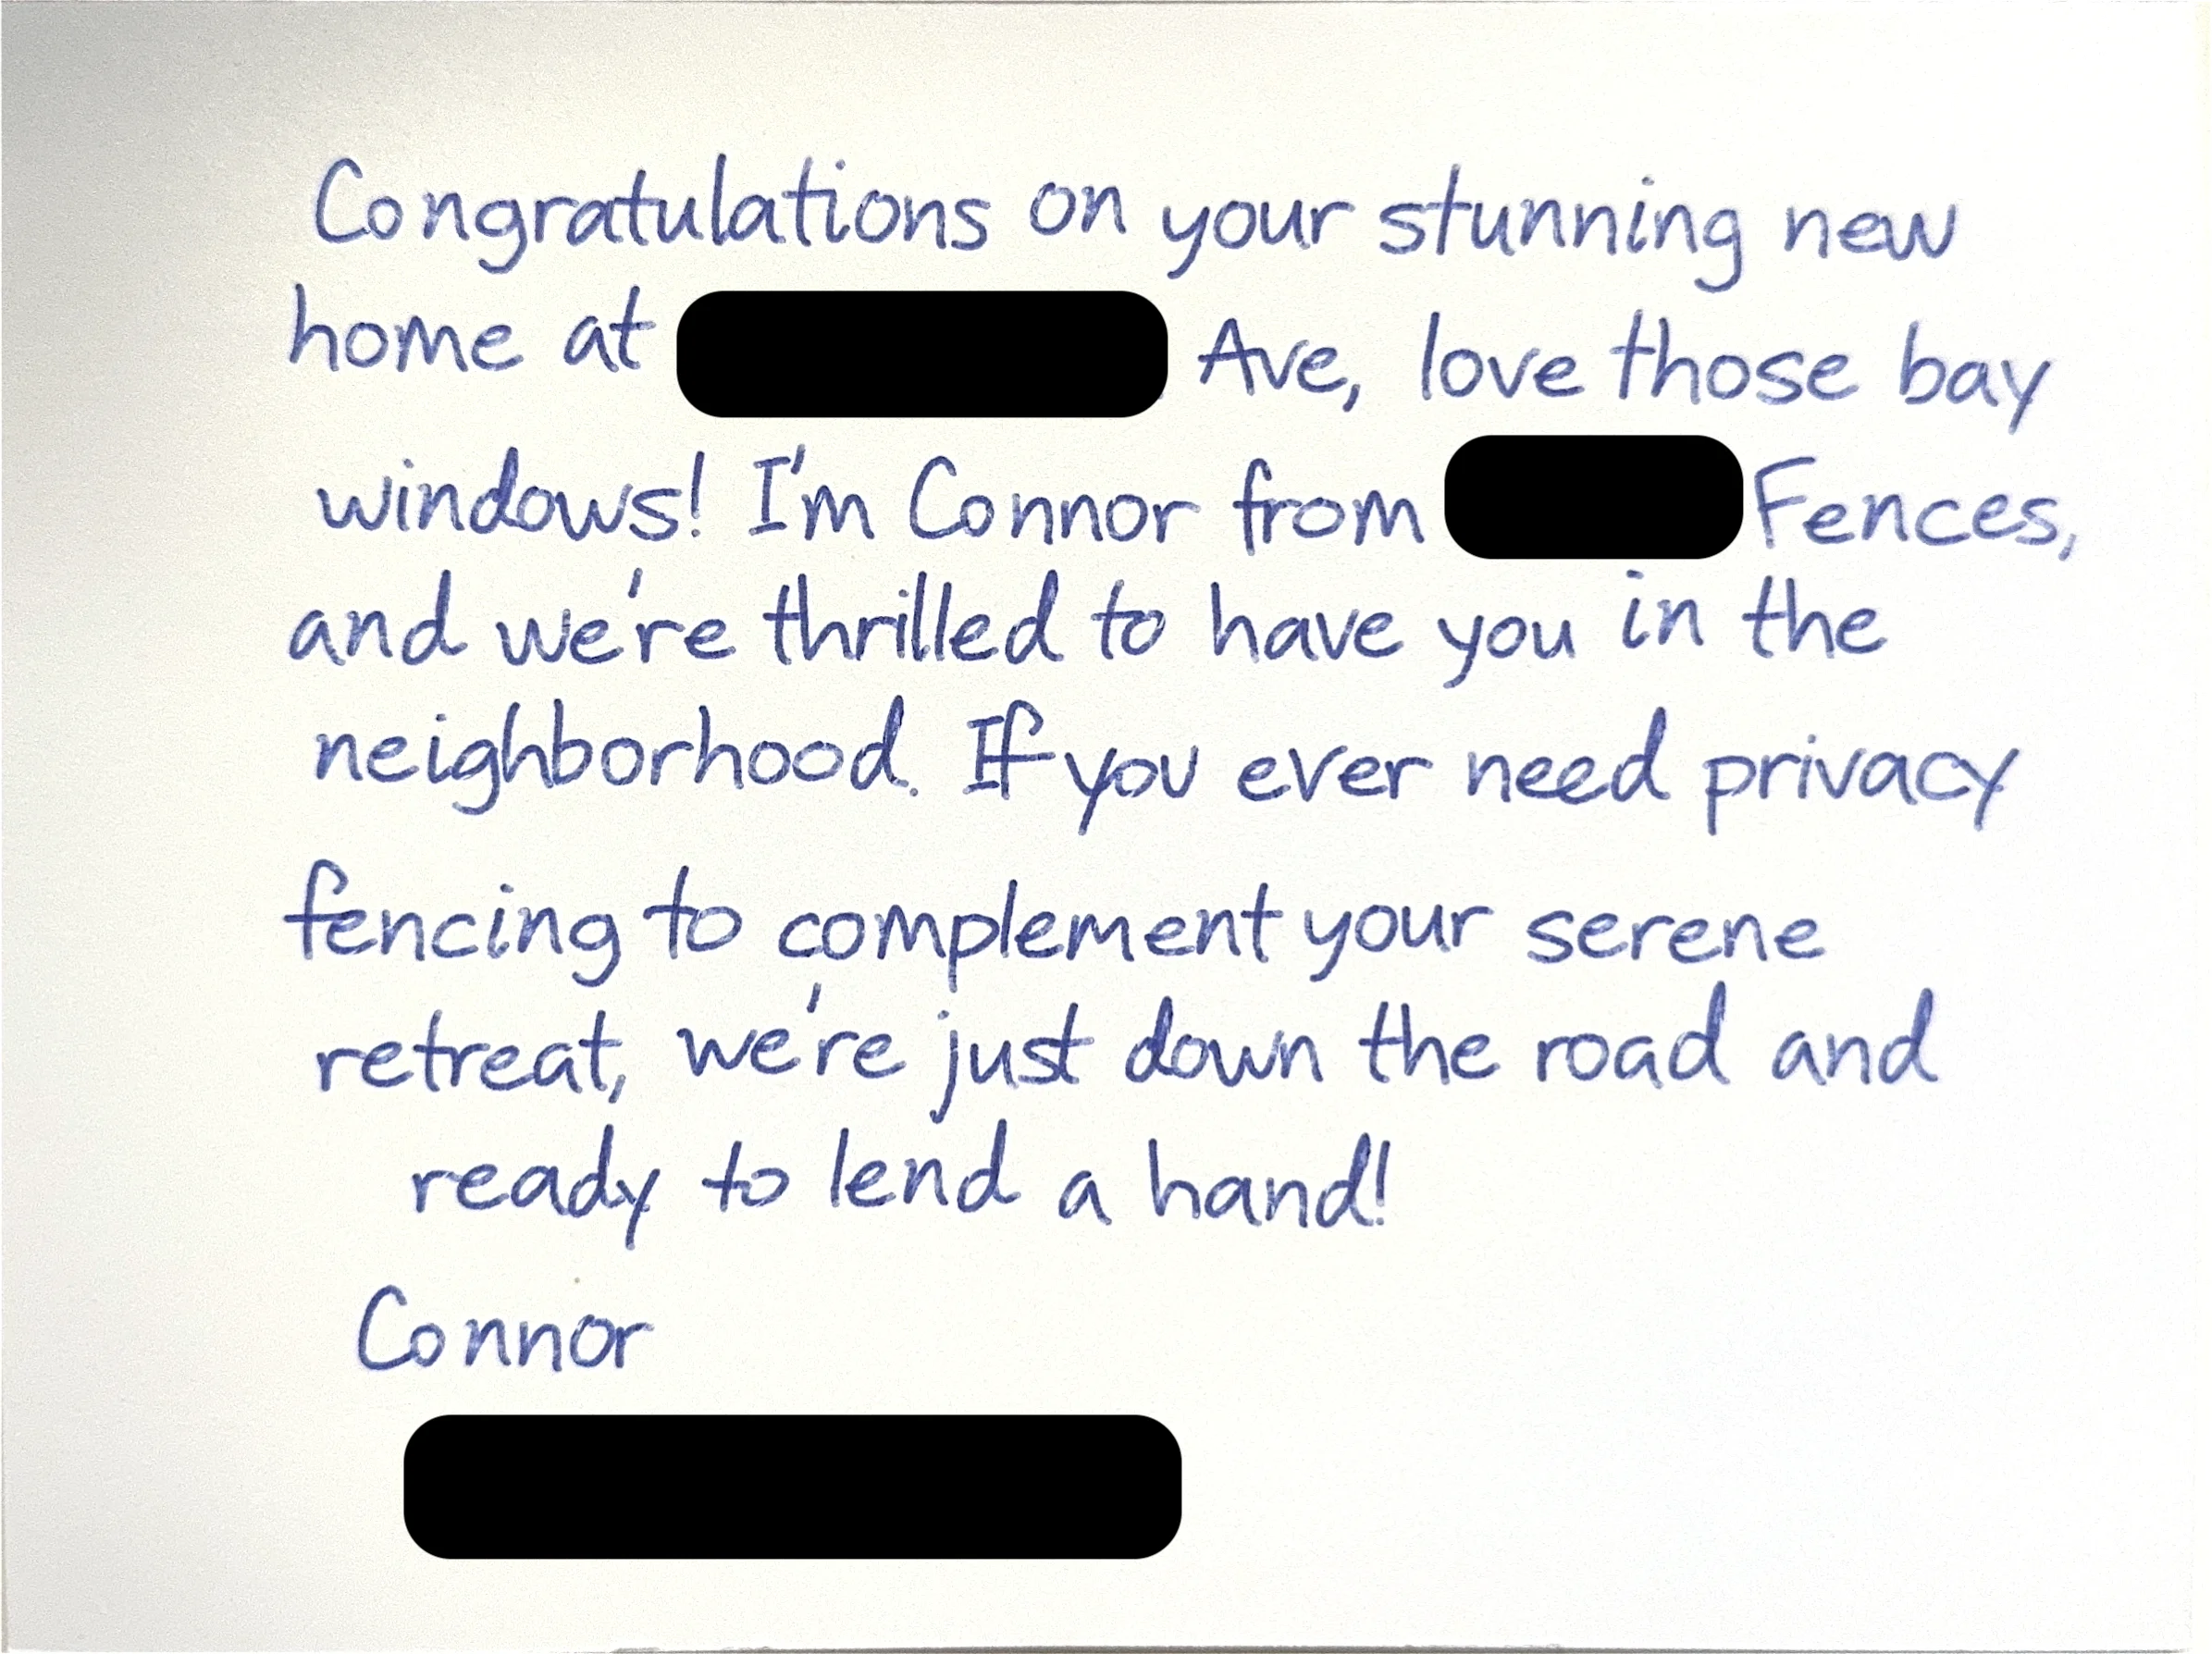 Congratulations on your stunning new
home at Ave, love those bay
windows! I'm Connor from Fences,
and we're thrilled to have you in the
neighborhood. If you ever need privacy
fencing to complement your serene
retreat, we're just down the road and
ready to lend a hand!
Connor